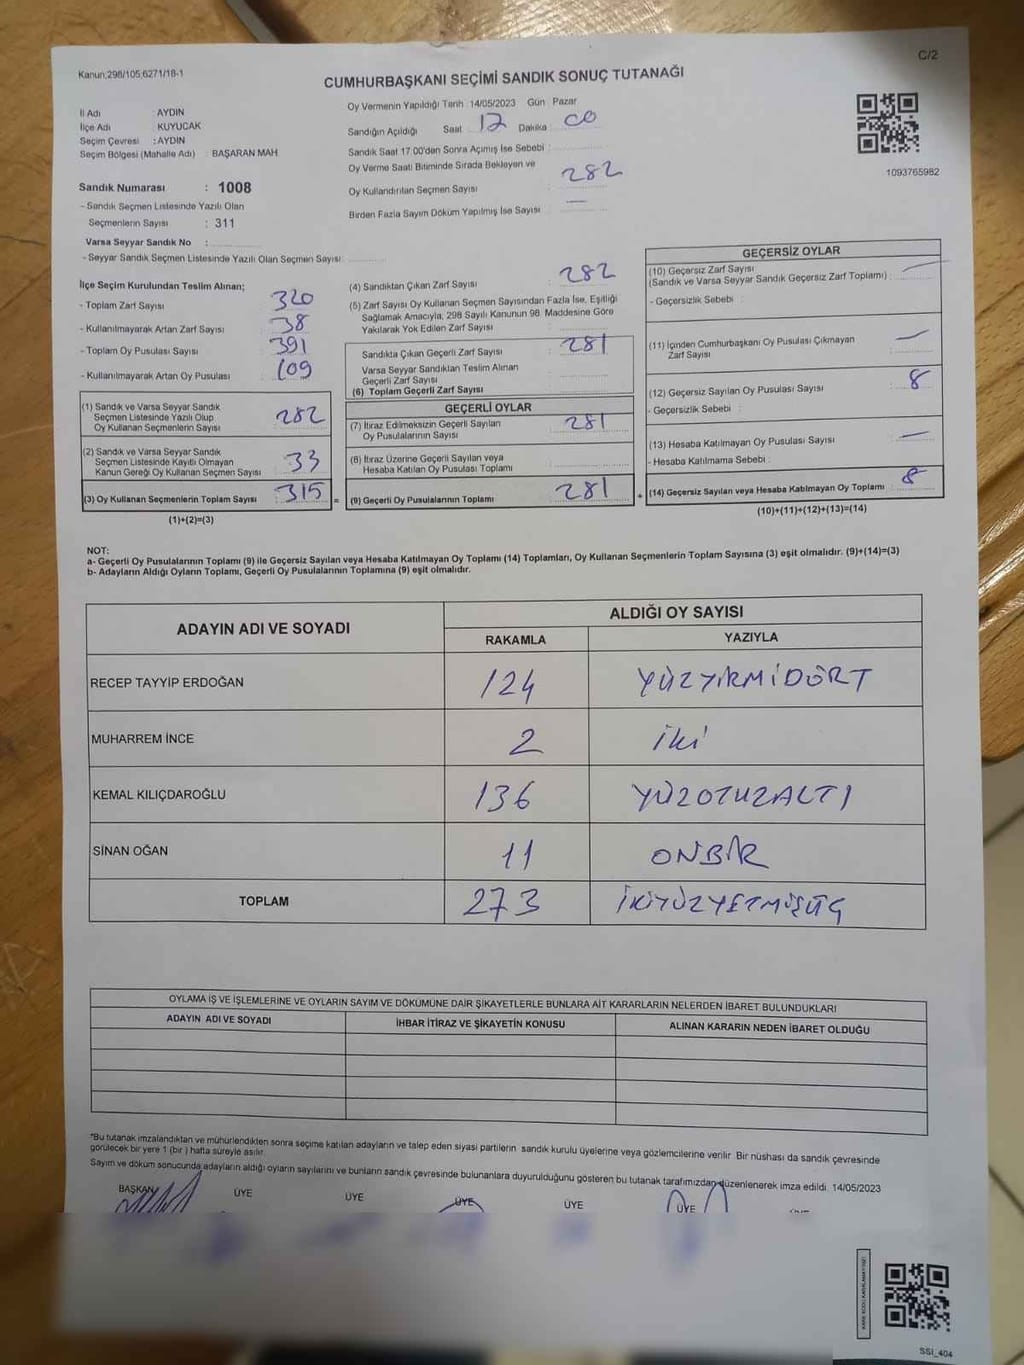 C/2
Kanun;298/105;6271/18-1
CUMHURBAŞKANI SEÇİMİ SANDIK SONUÇ TUTANAĞI
İl Adı : AYDIN
İlçe Adı : KUYUCAK
Seçim Çevresi : AYDIN
Seçim Bölgesi (Mahalle Adı) : BAŞARAN MAH
Sandık Numarası : 1008
- Sandık Seçmen Listesinde Yazılı Olan
Seçmenlerin Sayısı : 311
Varsa Seyyar Sandık No :
- Seyyar Sandık Seçmen Listesinde Yazılı Olan Seçmen Sayısı:
Oy Vermenin Yapıldığı Tarih :14/05/2023 Gün : Pazar
Sandığın Açıldığı Saat 17 Dakika 00
Sandık Saat 17:00'den Sonra Açımış İse Sebebi :
Oy Verme Saati Bitiminde Sırada Bekleyen ve
Oy Kullandırılan Seçmen Sayısı : 282
Birden Fazla Sayım Döküm Yapılmış İse Sayısı : —
1093765982
İlçe Seçim Kurulundan Teslim Alınan;
- Toplam Zarf Sayısı : 320
- Kullanılmayarak Artan Zarf Sayısı : 38
- Toplam Oy Pusulası Sayısı : 391
- Kullanılmayarak Artan Oy Pusulası : 109
(1) Sandık ve Varsa Seyyar Sandık
Seçmen Listesinde Yazılı Olup
Oy Kullanan Seçmenlerin Sayısı : 282
(2) Sandık ve Varsa Seyyar Sandık
Seçmen Listesinde Kayıtlı Olmayan
Kanun Gereği Oy Kullanan Seçmen Sayısı : 33
(3) Oy Kullanan Seçmenlerin Toplam Sayısı : 315 =
(1)+(2)=(3)
(4) Sandıktan Çıkan Zarf Sayısı : 282
(5) Zarf Sayısı Oy Kullanan Seçmen Sayısından Fazla İse, Eşitliği
Sağlamak Amacıyla, 298 Sayılı Kanunun 98. Maddesine Göre
Yakılarak Yok Edilen Zarf Sayısı :
Sandıkta Çıkan Geçerli Zarf Sayısı : 281
Varsa Seyyar Sandıktan Teslim Alınan
Geçerli Zarf Sayısı :
(6) Toplam Geçerli Zarf Sayısı :
GEÇERLİ OYLAR
(7) İtiraz Edilmeksizin Geçerli Sayılan
Oy Pusulalarının Sayısı : 281
(8) İtiraz Üzerine Geçerli Sayılan veya
Hesaba Katılan Oy Pusulası Toplamı :
(9) Geçerli Oy Pusulalarının Toplamı : 281 +
GEÇERSİZ OYLAR
(10) Geçersiz Zarf Sayısı
(Sandık ve Varsa Seyyar Sandık Geçersiz Zarf Toplamı) : —
- Geçersizlik Sebebi :
(11) İçinden Cumhurbaşkanı Oy Pusulası Çıkmayan
Zarf Sayısı : —
(12) Geçersiz Sayılan Oy Pusulası Sayısı : 8
- Geçersizlik Sebebi :
(13) Hesaba Katılmayan Oy Pusulası Sayısı : —
- Hesaba Katılmama Sebebi :
(14) Geçersiz Sayılan veya Hesaba Katılmayan Oy Toplamı : 8
(10)+(11)+(12)+(13)=(14)
NOT:
a- Geçerli Oy Pusulalarının Toplamı (9) ile Geçersiz Sayılan veya Hesaba Katılmayan Oy Toplamı (14) Toplamları, Oy Kullanan Seçmenlerin Toplam Sayısına (3) eşit olmalıdır. (9)+(14)=(3)
b- Adayların Aldığı Oyların Toplamı, Geçerli Oy Pusulalarının Toplamına (9) eşit olmalıdır.
ADAYIN ADI VE SOYADI
ALDIĞI OY SAYISI
RAKAMLA YAZIYLA
RECEP TAYYİP ERDOĞAN 124 YÜZYİRMİDÖRT
MUHARREM İNCE 2 İki
KEMAL KILIÇDAROĞLU 136 YÜZOTUZALTI
SİNAN OĞAN 11 ONBİR
TOPLAM 273 İKİYÜZYETMİŞÜÇ
OYLAMA İŞ VE İŞLEMLERİNE VE OYLARIN SAYIM VE DÖKÜMÜNE DAİR ŞİKAYETLERLE BUNLARA AİT KARARLARIN NELERDEN İBARET BULUNDUKLARI
ADAYIN ADI VE SOYADI İHBAR İTİRAZ VE ŞİKAYETİN KONUSU ALINAN KARARIN NEDEN İBARET OLDUĞU
*Bu tutanak imzalandıktan ve mühürlendikten sonra seçime katılan adayların ve talep eden siyasi partilerin sandık kurulu üyelerine veya gözlemcilerine verilir. Bir nüshası da sandık çevresinde
görülecek bir yere 1 (bir ) hafta süreyle asılır.
Sayım ve döküm sonucunda adayların aldığı oyların sayılarını ve bunların sandık çevresinde bulunanlara duyurulduğunu gösteren bu tutanak tarafımızdan düzenlenerek imza edildi. 14/05/2023
BAŞKAN ÜYE ÜYE ÜYE ÜYE ÜYE
SSI_404